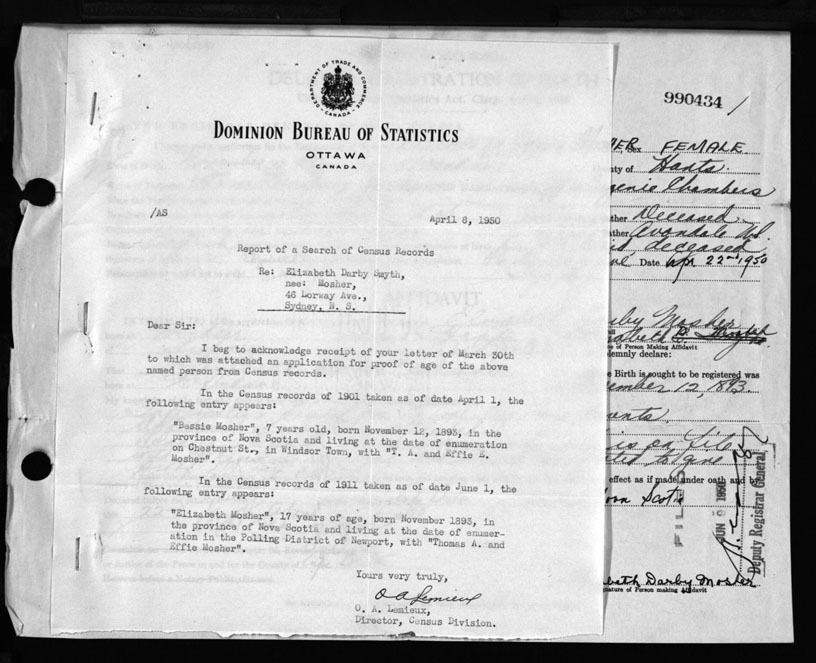 DEPARTMENT OF TRADE AND COMMERCE
CANADA
DOMINION BUREAU OF STATISTICS
OTTAWA
CANADA
/AS
April 8, 1950
Report of a Search of Census Records
Re: Elizabeth Darby Smyth,
nee: Mosher,
46 Lorway Ave.,
Sydney, N. S.
Dear Sir:
I beg to acknowledge receipt of your letter of March 30th
to which was attached an application for proof of age of the above
named person from Census records.
In the Census records of 1901 taken as of date April 1, the
following entry appears:
"Bessie Mosher", 7 years old, born November 12, 1893, in the
province of Nova Scotia and living at the date of enumeration
on Chestnut St., in Windsor Town, with "T. A. and Effie E.
Mosher".
In the Census records of 1911 taken as of date June 1, the
following entry appears:
"Elizabeth Mosher", 17 years of age, born November 1893, in
the province of Nova Scotia and living at the date of enumer-
ation in the Polling District of Newport, with "Thomas A. and
Effie Mosher".
Yours very truly,
O A Lemieux
O. A. Lemieux,
Director, Census Division.
990434 /
HER, Sex FEMALE
nty of Hants
genie Chambers
ther Deceased
ather Avondale
deceased
Date Apr 22nd 1950
rby Mosher
zabeth D.
re of Person Making Affidavit
lemnly declare:
e Birth is sought to be registered was
cember 12, 1893.
rents
is on file
to give
effect as if made under oath and by
ova Scotia
JUN 9 1950
Deputy Registrar General
beth Darby Mosher
gnature of Person making Affidavit